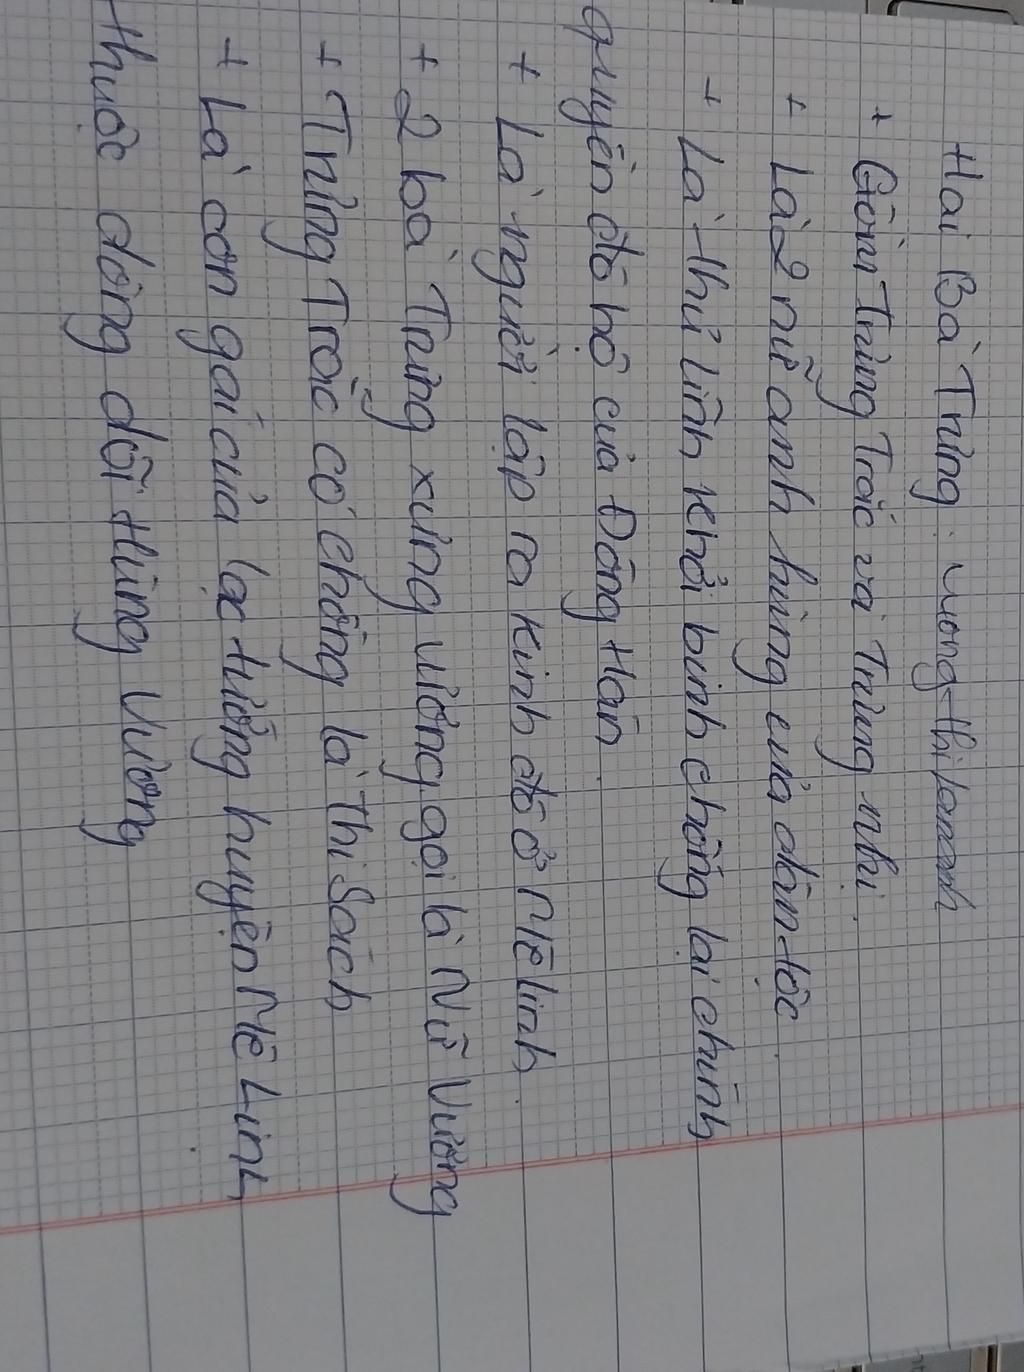 Hai Bà Trưng: vuong-thi/oanh
+ Gồm Trưng Trắc và Trưng nhị.
+ Là 2 nữ anh hùng của dân tộc.
+ Là thủ lĩnh khởi binh chống lại chính
quyền đô hộ của Đông Hán.
+ Là người lập ra kinh đô ở Mê Linh.
+ 2 bà Trưng xưng vương gọi là Nữ Vương
+ Trưng Trắc có chồng là Thi Sách
+ Là con gái của lạc tướng huyện Mê Linh
thuộc dòng dõi Hùng Vương